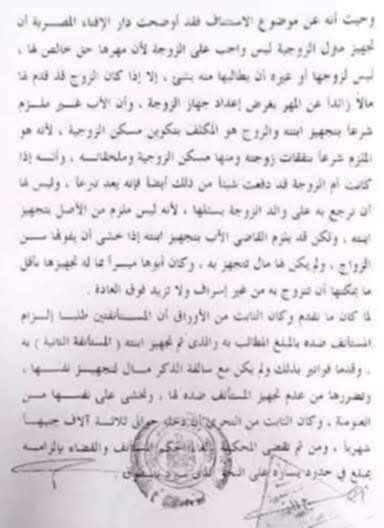 وحيث أنه عن موضوع الاستئناف فقد أوضحت دار الإفتاء المصرية أن
تجهيز منزل الزوجية ليس واجب على الزوجة لأن مهرها حق خالص لها ،
ليس لزوجها أو غيره أن يطالبها منه بشئ ، إلا إذا كان الزوج قد قدم لها
مالاً زائداً عن المهر بغرض إعداد جهاز الزوجة ، وأن الأب غير ملزم
شرعاً بتجهيز ابنته والزوج هو المكلف بتكوين مسكن الزوجية ، لأنه هو
الملزم شرعاً بنفقات زوجته ومنها مسكن الزوجية وملحقاته ، وأنه إذا
كانت أم الزوجة قد دفعت شيئاً من ذلك أيضاً فإنه يعد تبرعاً ، وليس لها
أن ترجع به على والد الزوجة بمثلها ، لأنه ليس ملزم من الأصل بتجهيز
ابنته ، ولكن قد يلزم القاضي الأب بتجهيز ابنته إذا خشى أن يفوتها سن
الزواج ، ولم يكن لها مال تتجهز به ، وكان أبوها ميسراً بما له تجهيزها بأقل
ما يمكنها أن تتزوج به من غير إسراف ولا تزيد فوق العادة .
لما كان ما تقدم وكان الثابت من الأوراق أن المستأنفتين طلبتا إلزام
المستأنف ضده بالمبلغ المطالب به والذى تم تجهيز ابنته ( المستأنفة الثانية ) به
، وقدما فواتير بذلك ولم يكن مع سالفة الذكر مال لتجهيز نفسها ،
وتضررها من عدم تجهيز المستأنف ضده لها ، وتخشى على نفسها من
العنوسة ، وكان الثابت من التحرى أن دخله حوالى ثلاثة آلاف جنيهاً
شهرياً ، ومن ثم تقضى المحكمة الحكم المستأنف والقضاء بإلزامه
بمبلغ في حدود يساره على النحو